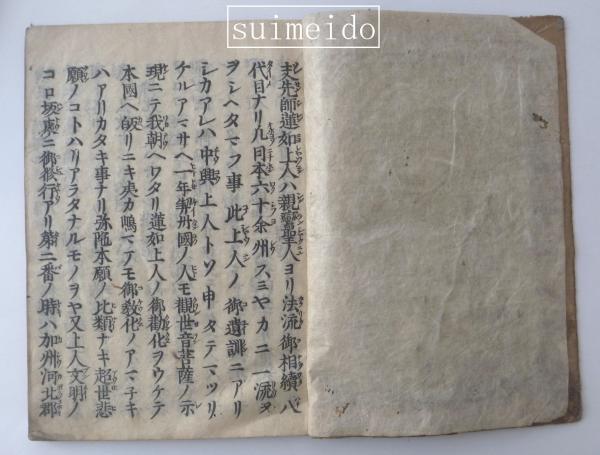 suimeido
夫先師蓮如上人ハ親鸞聖人ヨリ法流御相續八
代目ナリ凡日本六十余州スミヤカニ一流ヲ
ヲシヘタマフ事此上人ノ御遺誹ニアリ
シカアレハ中興上人トソ申タテマツリ
ケルアマサヘ一年契丹國ノ人モ觀世音菩薩ノ示
現ニテ我朝ヘワタリ蓮如上人ノ御勸化ヲウケテ
本國ヘ皈リニキ夷カ嶋マテモ御敎化ノアマチキ
ハアリカタキ事ナリ弥陁本願ノ比類ナキ超世悲
願ノコトハリアラタナルモノヲヤ又上人文明ノ
コロ坂東ニ御修行アリ第二番ノ時ハ加州河北郡